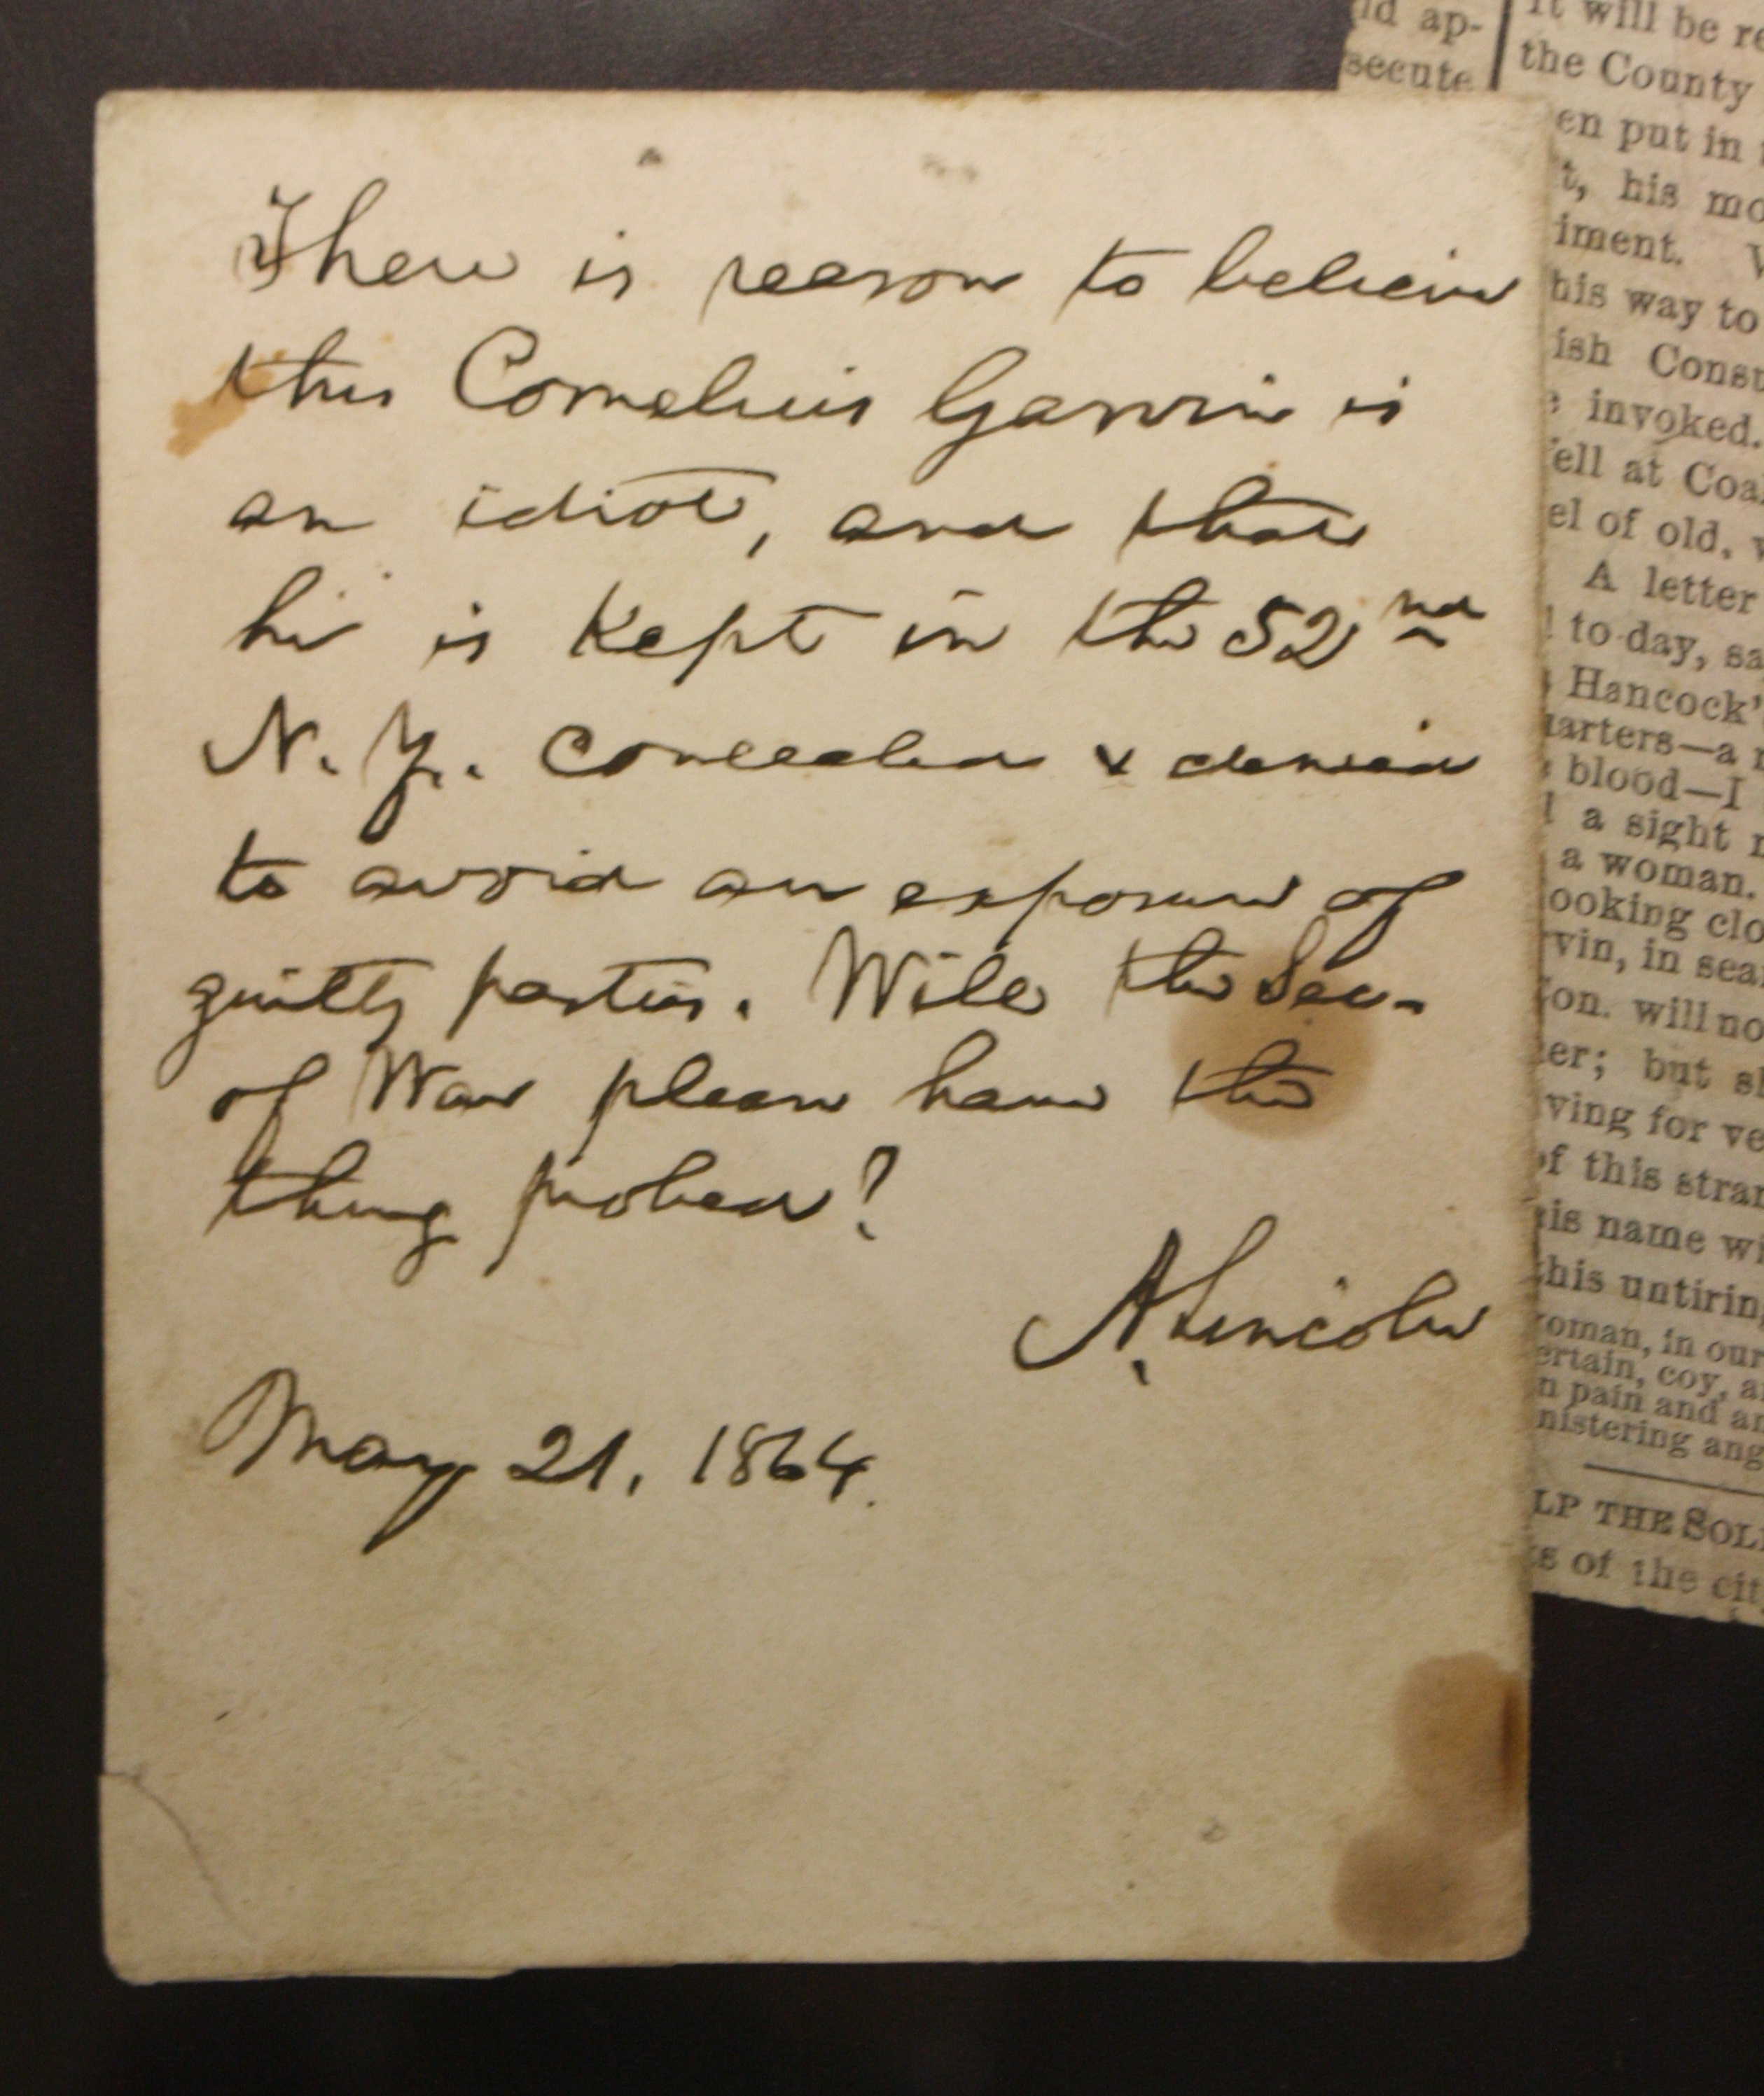 There is reason to believe
this Cornelius Garvin is
an idiot, and that
he is kept in the 52nd
N. Y. concealed & denied
to avoid an exposure of
guilty parties. Will the Sec.
of War please have the
thing probed?
A. Lincoln
May 21, 1864.
ld ap-
secute
It will be re
the County
en put in
t, his mo
iment.
his way to
ish Cons
invoked.
ell at Coa
el of old,
A letter
to-day, sa
Hancock'
uarters—a
blood—I
a sight
a woman.
ooking clo
vin, in sea
on. will no
er; but s
ving for ve
of this stran
is name wi
this untirin
oman, in our
ertain, coy, a
n pain and an
nistering ang
LP THE SOL
s of the cit